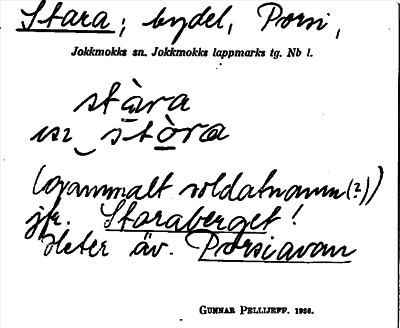 Stara; bydel, Porsi,
Jokkmokks sn. Jokkmokks lappmarks tg. Nb l.
stàra
stòra
(gammalt soldatnamn(?))
jfr. Staraberget!
Heter äv. Porsiavan
GUNNAR PELLIJEFF. 1956.